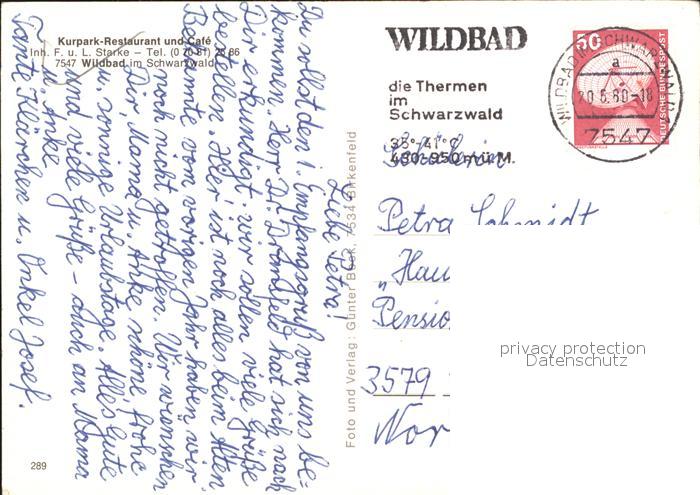 Kurpark-Restaurant und Café
Inh. F. u. L. Starke – Tel. (0 70 81) 25 86
7547 Wildbad im Schwarzwald
289
Liebe Petra!
Du sollst den 1. Empfangsgruß von uns be-
kommen. Herr Dr. hat sich nach
Dir erkundigt; wir sollen viele Grüße
bestellen. Hier ist noch alles beim Alten.
Bekannte vom vorigen Jahr haben wir
noch nicht getroffen. Wir wünschen
Dir, Mama u. Anke schöne, frohe
u. sonnige Urlaubstage. Alles Gute
und viele Grüße – auch an Mama
u. Anke
Tante Klärchen u. Onkel Josef.
Foto und Verlag: Günter Beck, 7534 Birkenfeld
WILDBAD
die Thermen
im
Schwarzwald
35°-41°C
430-950 m ü. M.
WILDBAD IM SCHWARZWALD
a
0.6.80-18
7547
50
DEUTSCHE BUNDESPOST
Schülerin
Petra Schmidt
„Hau
Pensio
3579
Nor
privacy protection
Datenschutz